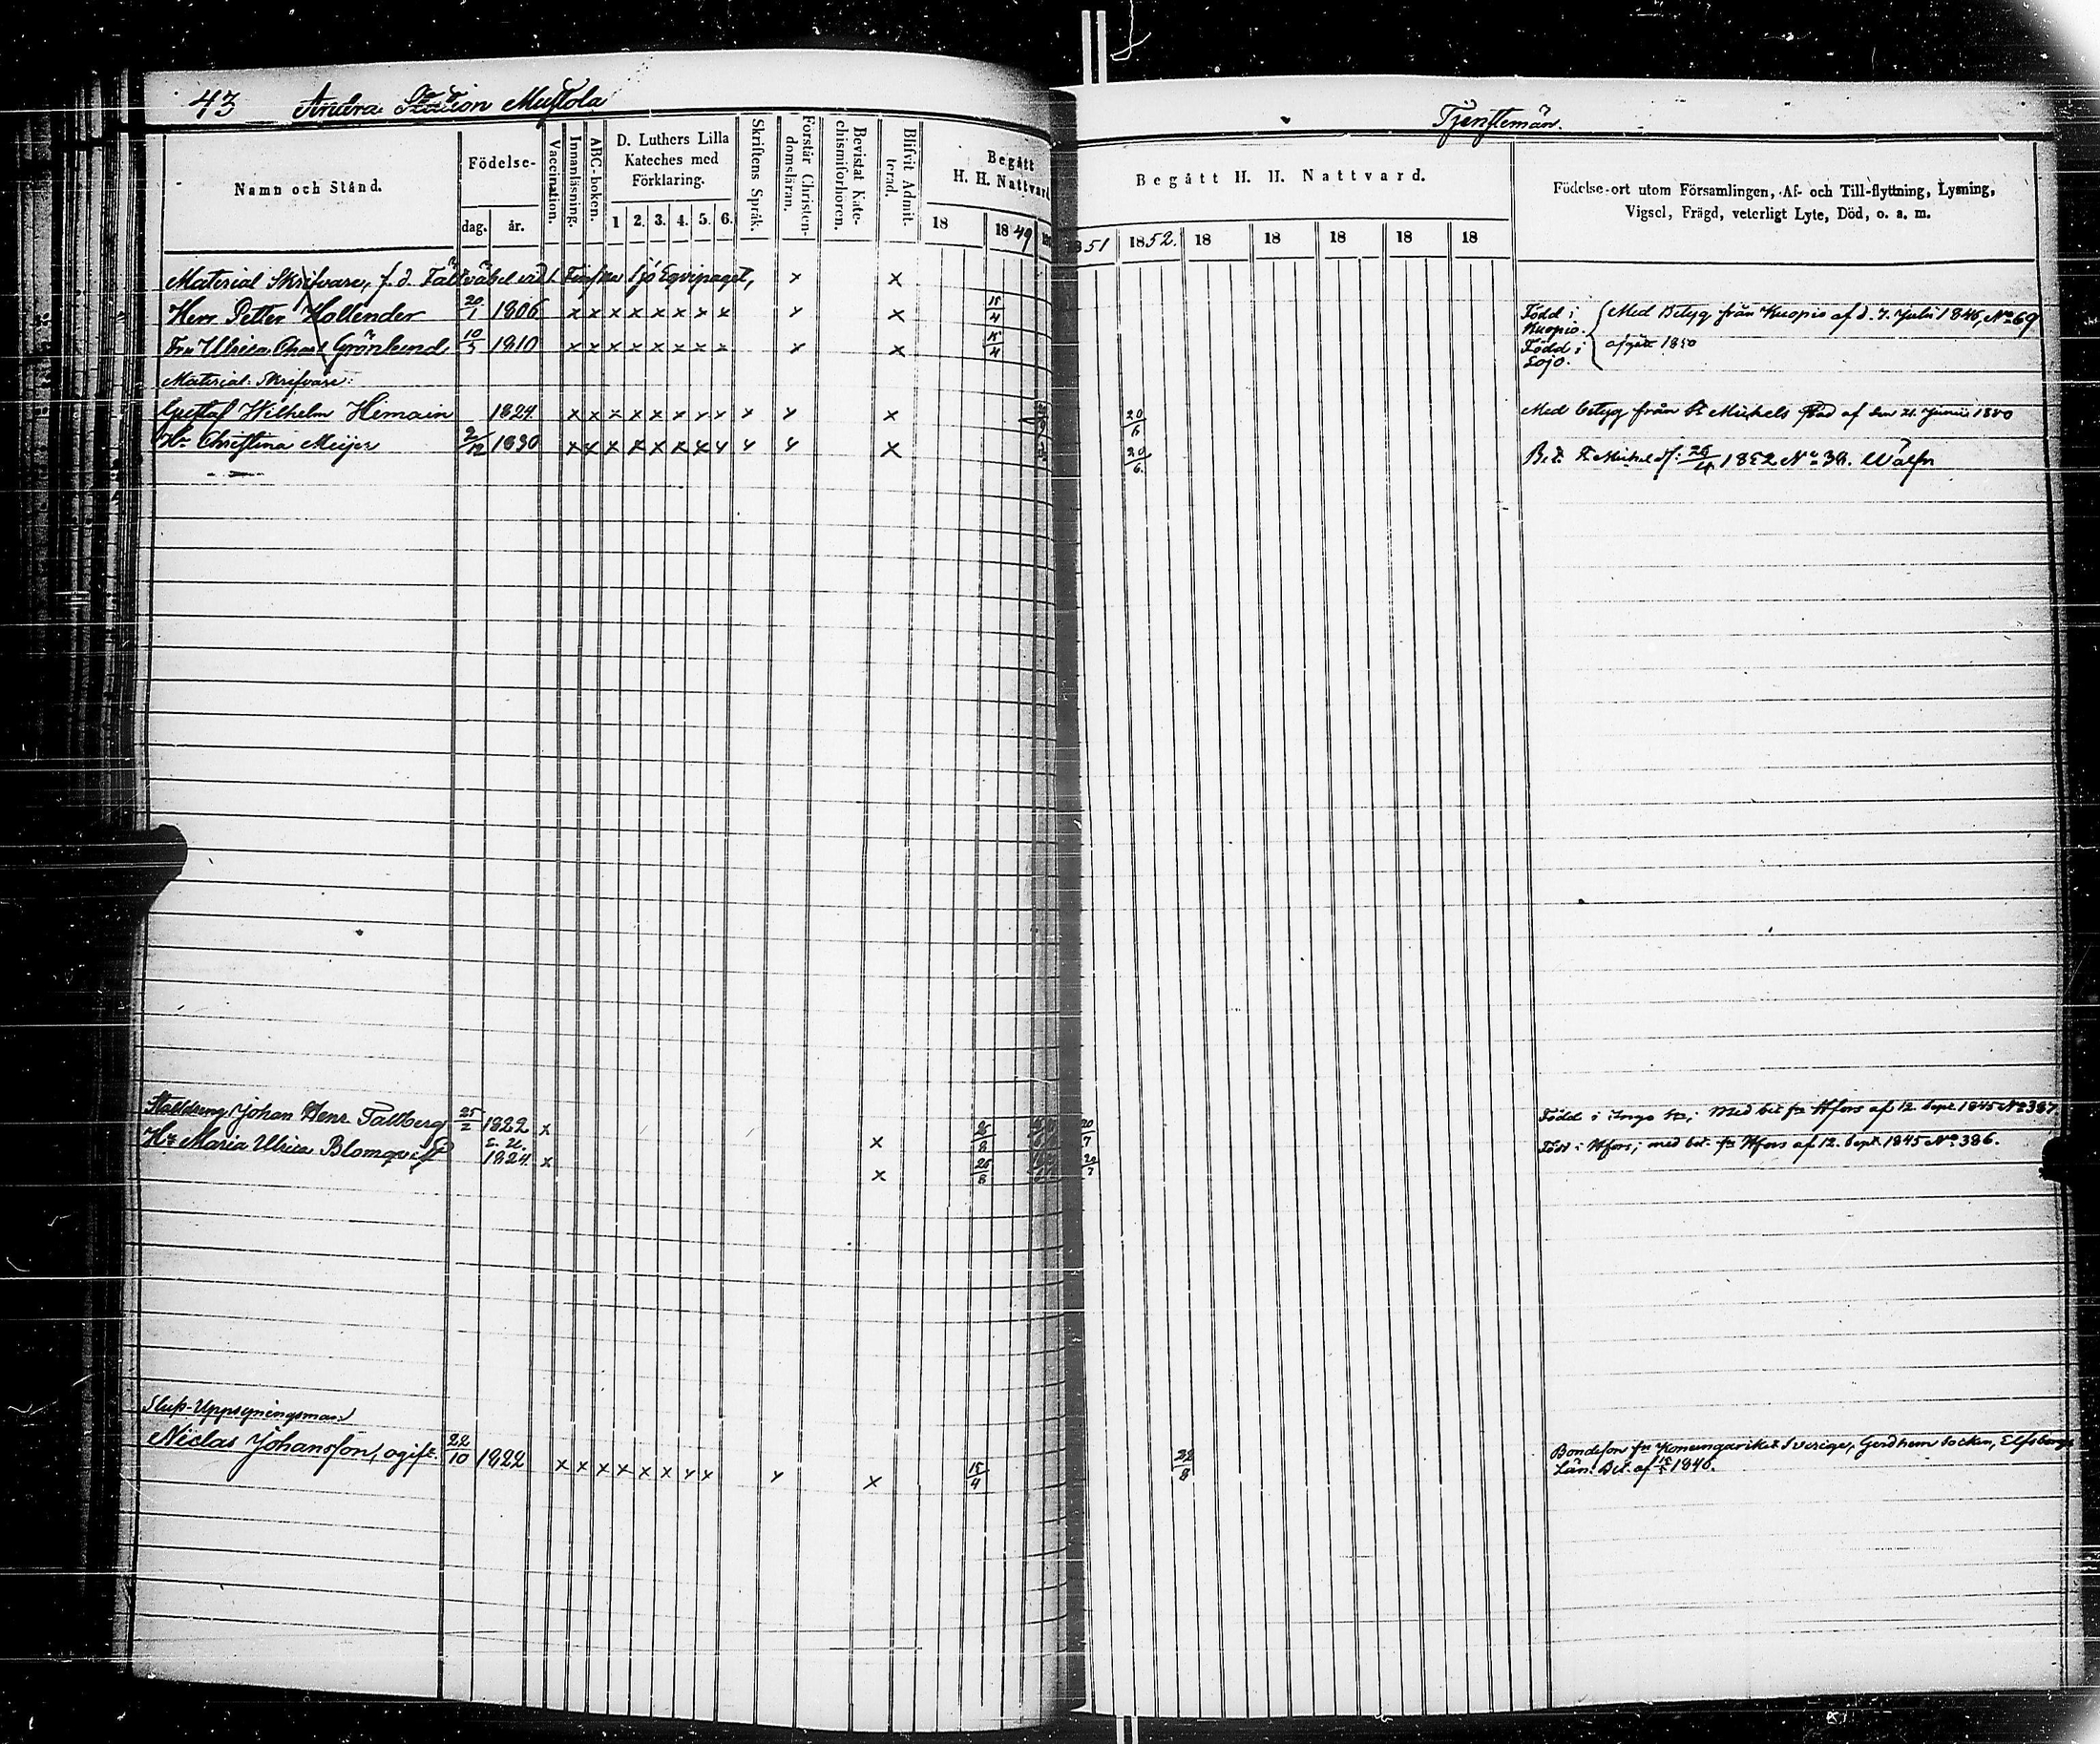 43 Andra Station Mustola
Tjenstemän.
Namn och Stånd.
Födelse-
dag. år.
Vaccination.
Innanläsning.
ABC-boken.
D. Luthers Lilla
Kateches med
Förklaring.
1 2. 3. 4. 5. 6.
Skriftens Språk.
Förstår Christen-
domsläran.
Bevistat Kate-
chismiförhören.
Blifvit Admit-
terad.
Begått
H. H. Nattvard
18 1849
Begått H. H. Nattvard.
51 1852. 18 18 18 18 18
Födelse-ort utom Församlingen, Af- och Till-flyttning, Lysning,
Vigsel, Frägd, veterligt Lyte, Död, o. s. m.
Material Skrifvare, f. d. Fältväbel vid 1. Finska Sjö Eqvipaget, x x
Herr Petter Hollender 20/1 1806 x x x x x x x x x x 15/4 Född i Kuopio. Med Betyg från Kuopio af d. 7. Julii 1846, No 69
Fru Ulrica Grönlund 10/3 1810 x x x x x x x x x x 15/4 Född i Lojo. afgått 1850
Material-Skrifvare:
Gustaf Wilhelm Himain 1824 x x x x x x x x x x x 20/6 Med betyg från St Michels Stad af den 21. Junii 1850
Hu Christina Meijer 2/12 1830 x x x x x x x x x x x 20/6 Bet. St Michel af: 26/4 1852 No 38.
Stalldreng Johan Henr Tallberg 25/2 1822 x x 26/8 20/7 Född i Ingo Sn; Med bet fr Hfors af 12 Sept. 1845 No 387.
Hu Maria Ulrica Blomqvist 1824. x x 26/8 20/7 Född i Hfors; med bet. fr Hfors af 12. Sept 1845 No 386.
Sluss-Uppsyningsman
Niclas Johansson, ogift. 22/10 1822 x x x x x x x x x x 15/4 22/8 Bondeson fr Konungariket Sverige, Gerdhem Socken, Elfsborgs
Län. Bet. af 1846.